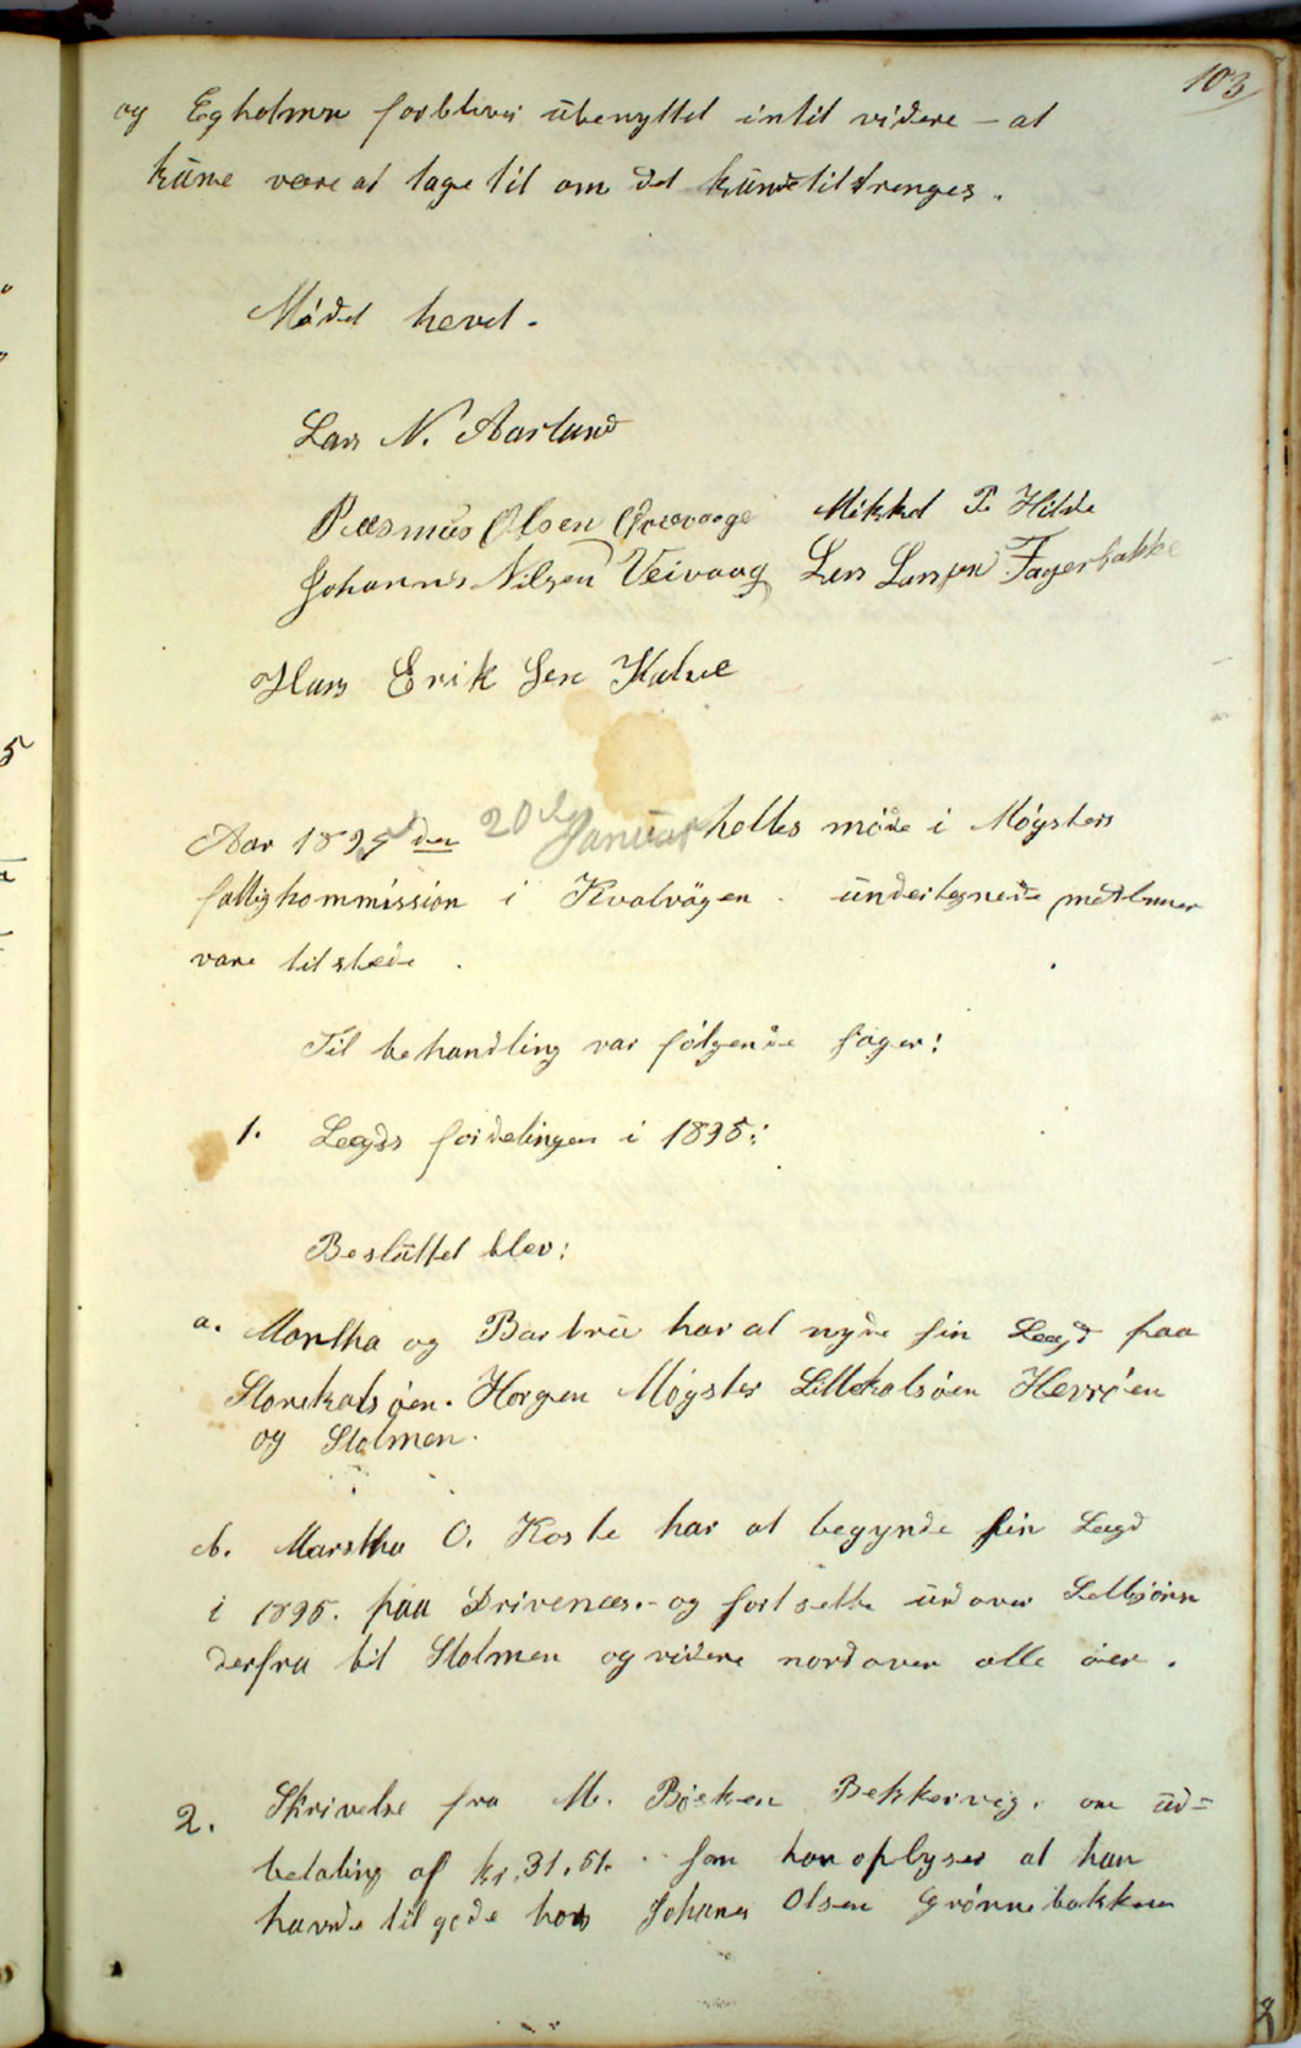 103
og Egholmen forbliver ubenyttet intil videre – at
kunne være at tage til om det kunde tiltrenges.
Mødet hævet.
Lars N. Aarland
Rasmus Olsen Mikkel P. Hilde
Johannis Nilsen Veivaag Lars Larssen Fagerbakke
Hans Erik Sen Kalve
Aar 1895 den 20de Januar holtes møde i Møgsters
fattigkommission i Kvalvågen. undertegnede medlemer
vare tilstede.
Til behandling var følgende sager:
1. Lægds fordelingen i 1895:
Besluttet blev:
a. Martha og Barbru har at nyde sin Lægd paa
Storekalsøen. Horgen Møgster Littekalsøen Herrøen
og Stolmen.
b. Marstha O. Koste har at begynde sin Lægd
i 1895. paa Drivenæs. – og fortsette udover Selbjørn
derfra til Stolmen og videre nordover alle øer.
2. Skrivelse fra M. Bøsken Bekkervig. om ud=
betaling af kr. 31,51. som han oplyser at han
havde tilgode hos Johanes Olsen Grønnebakken